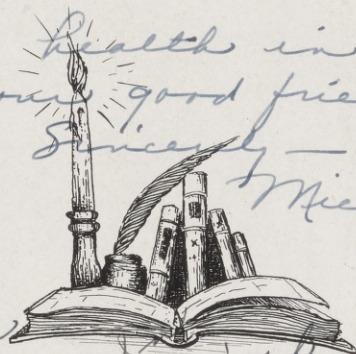 health in
our good frie
Sincerely —
Mic